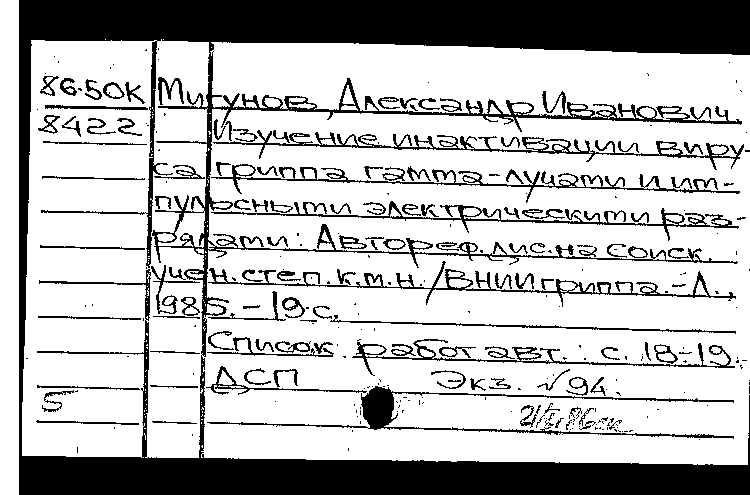 86-50К Мигунов, Александр Иванович.
8422 Изучение инактивации виру-
са гриппа гамма-лучами и им-
пульсными электрическими раз-
рядами: Автореф. дис. на соиск.
учен. степ. к.м.н. / ВНИИ гриппа. - Л.,
1985. - 19 с.
Список работ авт.: с. 18-19.
ДСП Экз. √ 94.
5